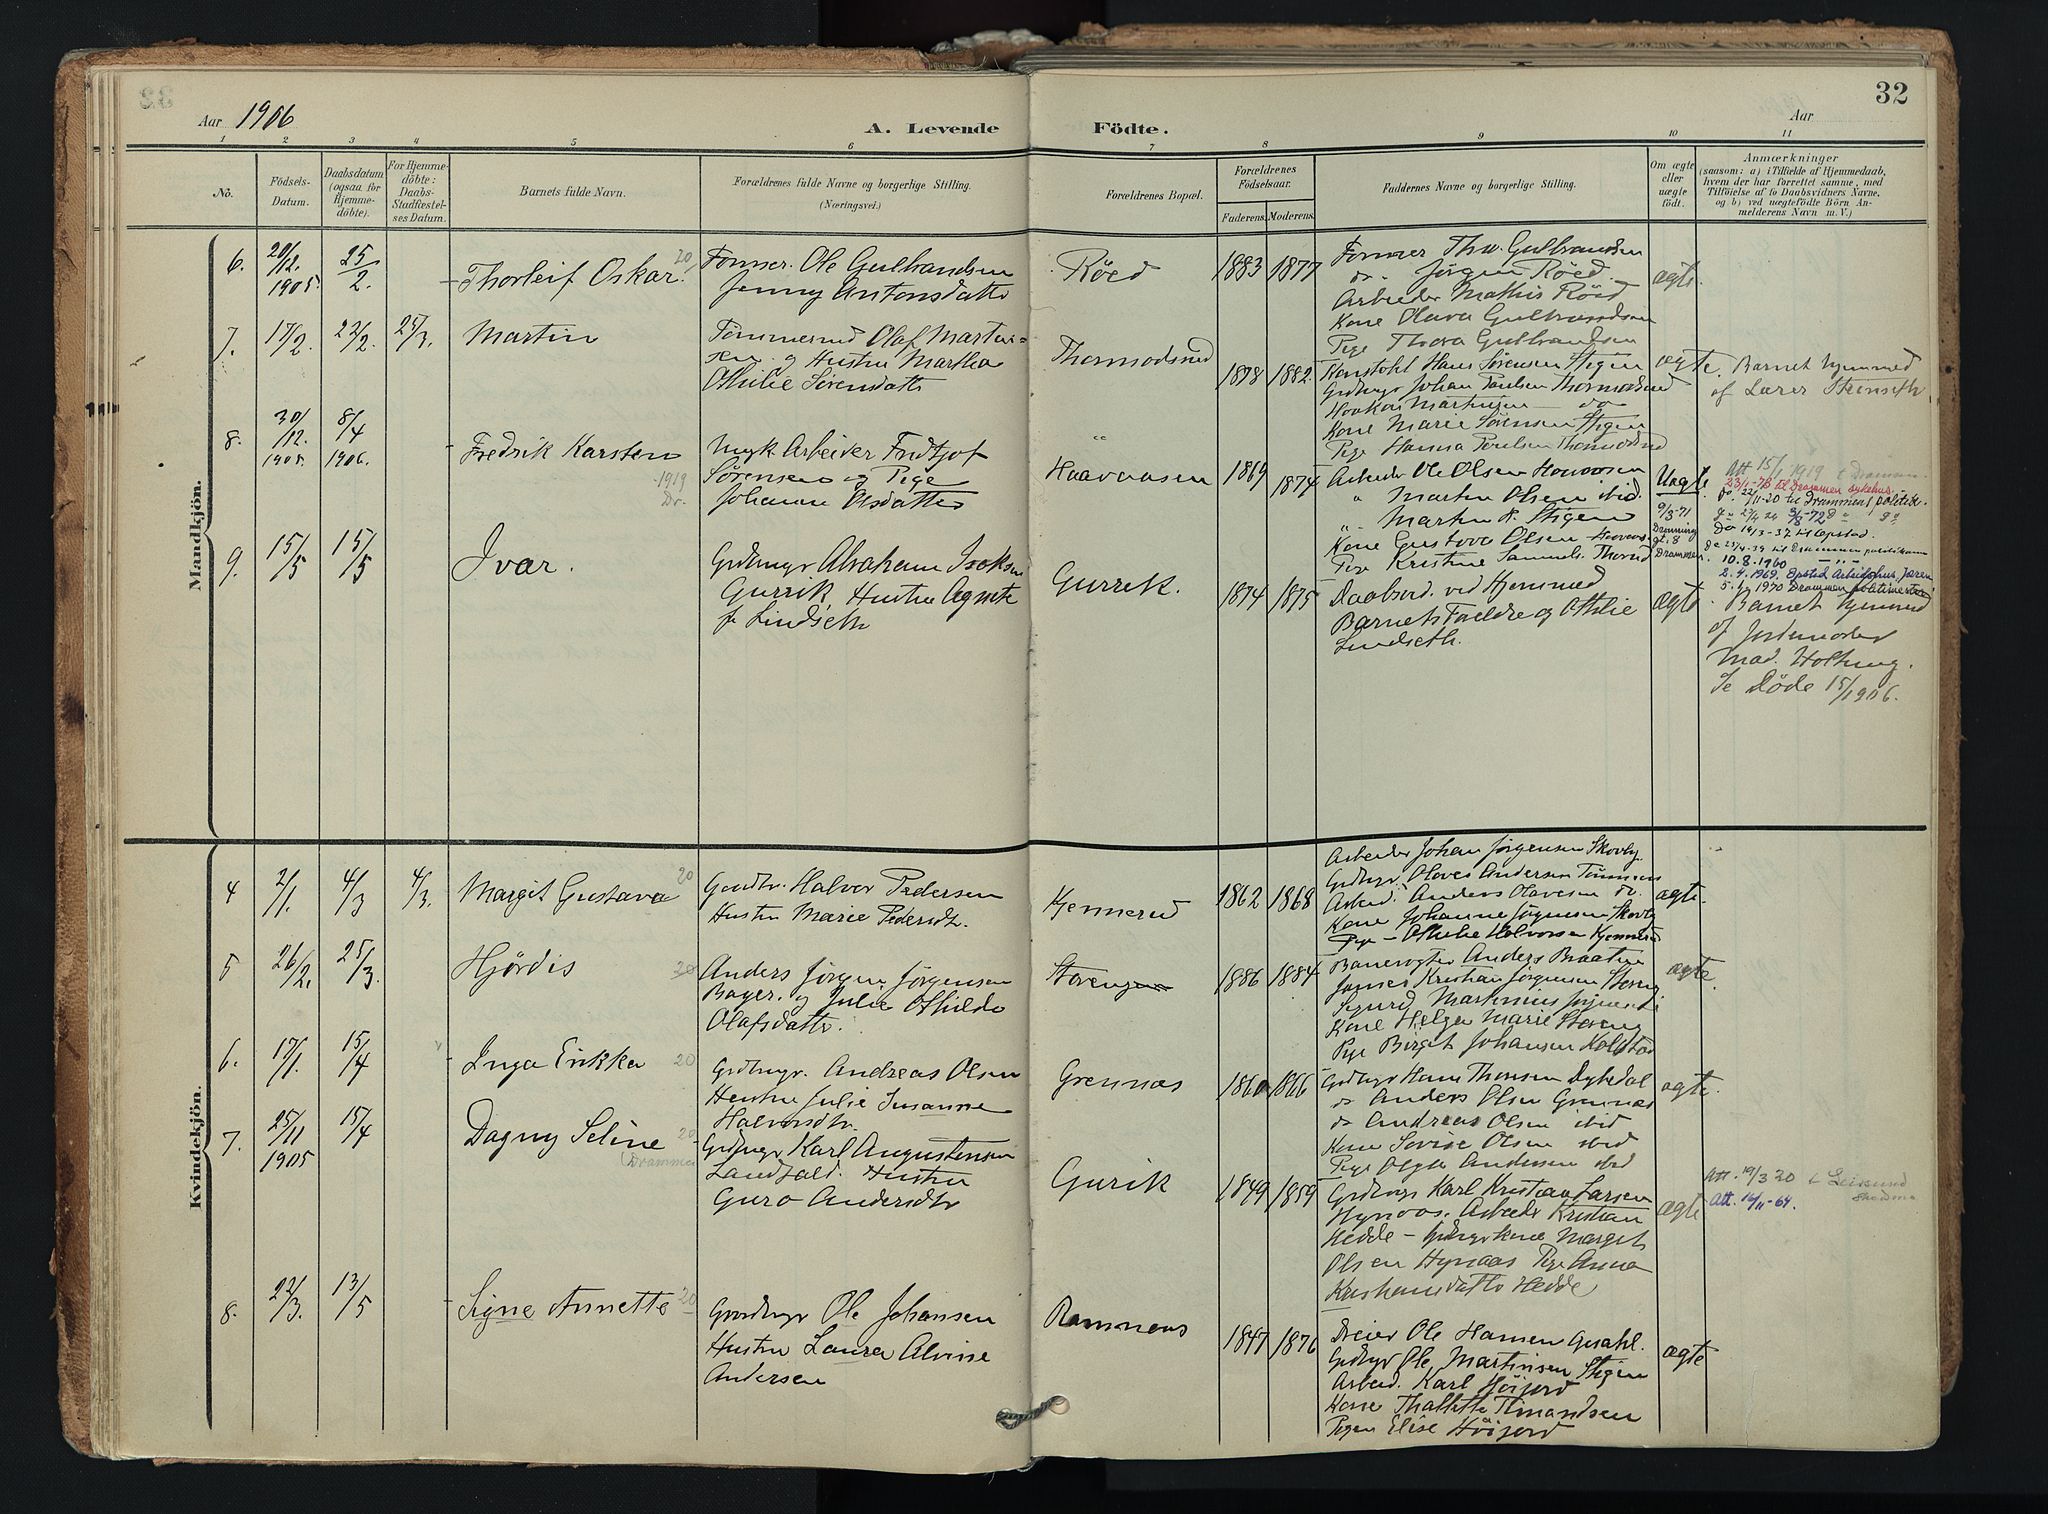 32
Aar 1906
A. Levende Födte.
Aar
1 2 3 4 5 6 7 8 9 10 11
No.
Födsels-Datum.
Daabsdatum (ogsaa for Hjemme-döbte).
For Hjemme-döbte: Daabs-Stadfæstel-ses Datum.
Barnets fulde Navn.
Forældrenes fulde Navne og borgerlige Stilling.
(Næringsvei.)
Forældrenes Bopæl.
Forældrenes Födselsaar.
Faderens. Moderens.
Faddernes Navne og borgerlige Stilling.
Om ægte eller uægte födt.
Anmærkninger
(saasom: a) i Tilfælde af Hjemmedaab,
hvem der har forrettet samme, med
Tilföielse af to Daabsvidners Navne.
og b) ved uægtefödte Börn An-
melderens Navn m. V.)
Mandkjön.
6. 20/12. 1905. 25/2. Thorleif Oskar. 20
Tømmer. Ole Gulbrandsen
Jenny Antonsdatter
Röed 1883 1877
Tømmer Thv. Gulbrandsen
do. Jørgen Röed.
Arbeider Mathis Röed
Kone Olava Gulbrandsen
Pige Thora Gulbrandsen
ægte.
7. 17/2. 22/2. 25/3. Martin
Tømmermd Olaf Martin-
sen og Hustru Martha
Othilie Sørensdatter
Thormodsrud 1878 1882.
Hans Sørensen Stigen
Grdbrgr Johan Paulsen Thormodsrud
Haakon Martinsen do
Kone Marie Sørensen Stigen
Pige Hanna Poulsen Thormodsrud
ægte. Barnet hjemmed
af Lærer Stenseth.
8. 30/12. 1905. 8/4 1906. Fredrik Karsten
1919 Dr.
Murk. Arbeider Fridtjof
Sørensen og Pige
Johanne Olsdatter
Haavaasen 1869 1874
Arbeider Ole Olsen Hovaasen
" Martin Olsen ibid.
" Martin A. Stigen
Kone Gustava Olsen
Pige Kristine Samuels. Thorud
Uægte
9/3-71
Dronning
gt. 8
Drammen.
Att 15/1 1919 t Drammen
23/1-78 til Drammen sykehus.
do. 22/11-20 til Drammens politik.
do 14/3-37 til Opstad.
do 25/4-39 til Drammen politikam
10.8.1960 - " -
2.4.1969. Opstad Arbeidshus. Jæren
5. 1/4 1970 Drammen politimester
9. 15/5 15/5 Ivar.
Grdbrugr Abraham Isaksen
Gurrik Hustru Agnete
f. Lindseth
Gurrik. 1874 1875
Daabsvd. ved Hjemmed
Barnets Forældre og Othilie
Lindseth.
ægte. Barnet hjemmed
af Jordmoder
Mad. Holtung.
Se Døde 15/1906.
Kvindekjön.
4 2/1. 4/3 4/3. Margit Gustava 20
Gaardbr. Halvor Pedersen
Hustru Marie Pedersdtr.
Kjennerud 1862 1868
Arbeider Johan Jørgensen Skovby
Grdbrgr Olaves Andersen
Arbeid. Anders Olavesen do.
Kone Johanne Jørgensen Skovby
Pige - Othilie Halvorsen Kjennerud
ægte.
5 26/2. 25/3. Hjørdis 20
Anders Jørgen Jørgensen
Bager. og Julie Othilde
Olafsdatter.
Storengen 1886 1884
Banevogter Anders Braaten
Kristian Jørgensen Storeng
Sigurd Martinius Jørgensen
Kone Helga Marie Storeng
Pige Birgit Johansen Kolstad
ægte.
6. 17/1. 15/4 Inga Erikka 20
Grdbrugr. Andreas Olsen
Hustru Julie Susanne
Halvorsdtr.
Grennas 1860 1866
Grdbrugr Hans Thorsen Dybedal
do Anders Olsen Grennas
do Andreas Olsen ibid
Kone Lovise Olsen ibid
Pige Olga Andersen ibid
ægte.
7. 25/11 1905 15/4 Dagny Seline 20
(Drammen
Grdbrugr Karl Augustensen
Landfald. Hustru
Guro Andersdtr
Gurik 1849 1859
Grdbrugr Karl Kristian Larsen
Hynaas. Arbeider Kristian
Hedde - Grdbrgr kone Margit
Olsen Hynaas Pige Anna
Kristiansdatter Hedde
ægte
Att. 19/3 20 t
Att. 16/11-64.
8. 22/3. 13/5 Signe Annette 20
Gaardbrgr Ole Johansen
Hustru Laura Alvine
Andersen
Ramnaas 1847 1876
Dreier Ole Hansen
Grdbrgr Ole Martinsen Stigen
Arbeid. Karl Höijord
Kone Thallette Amandsen
Pigen Elise Höijord
ægte